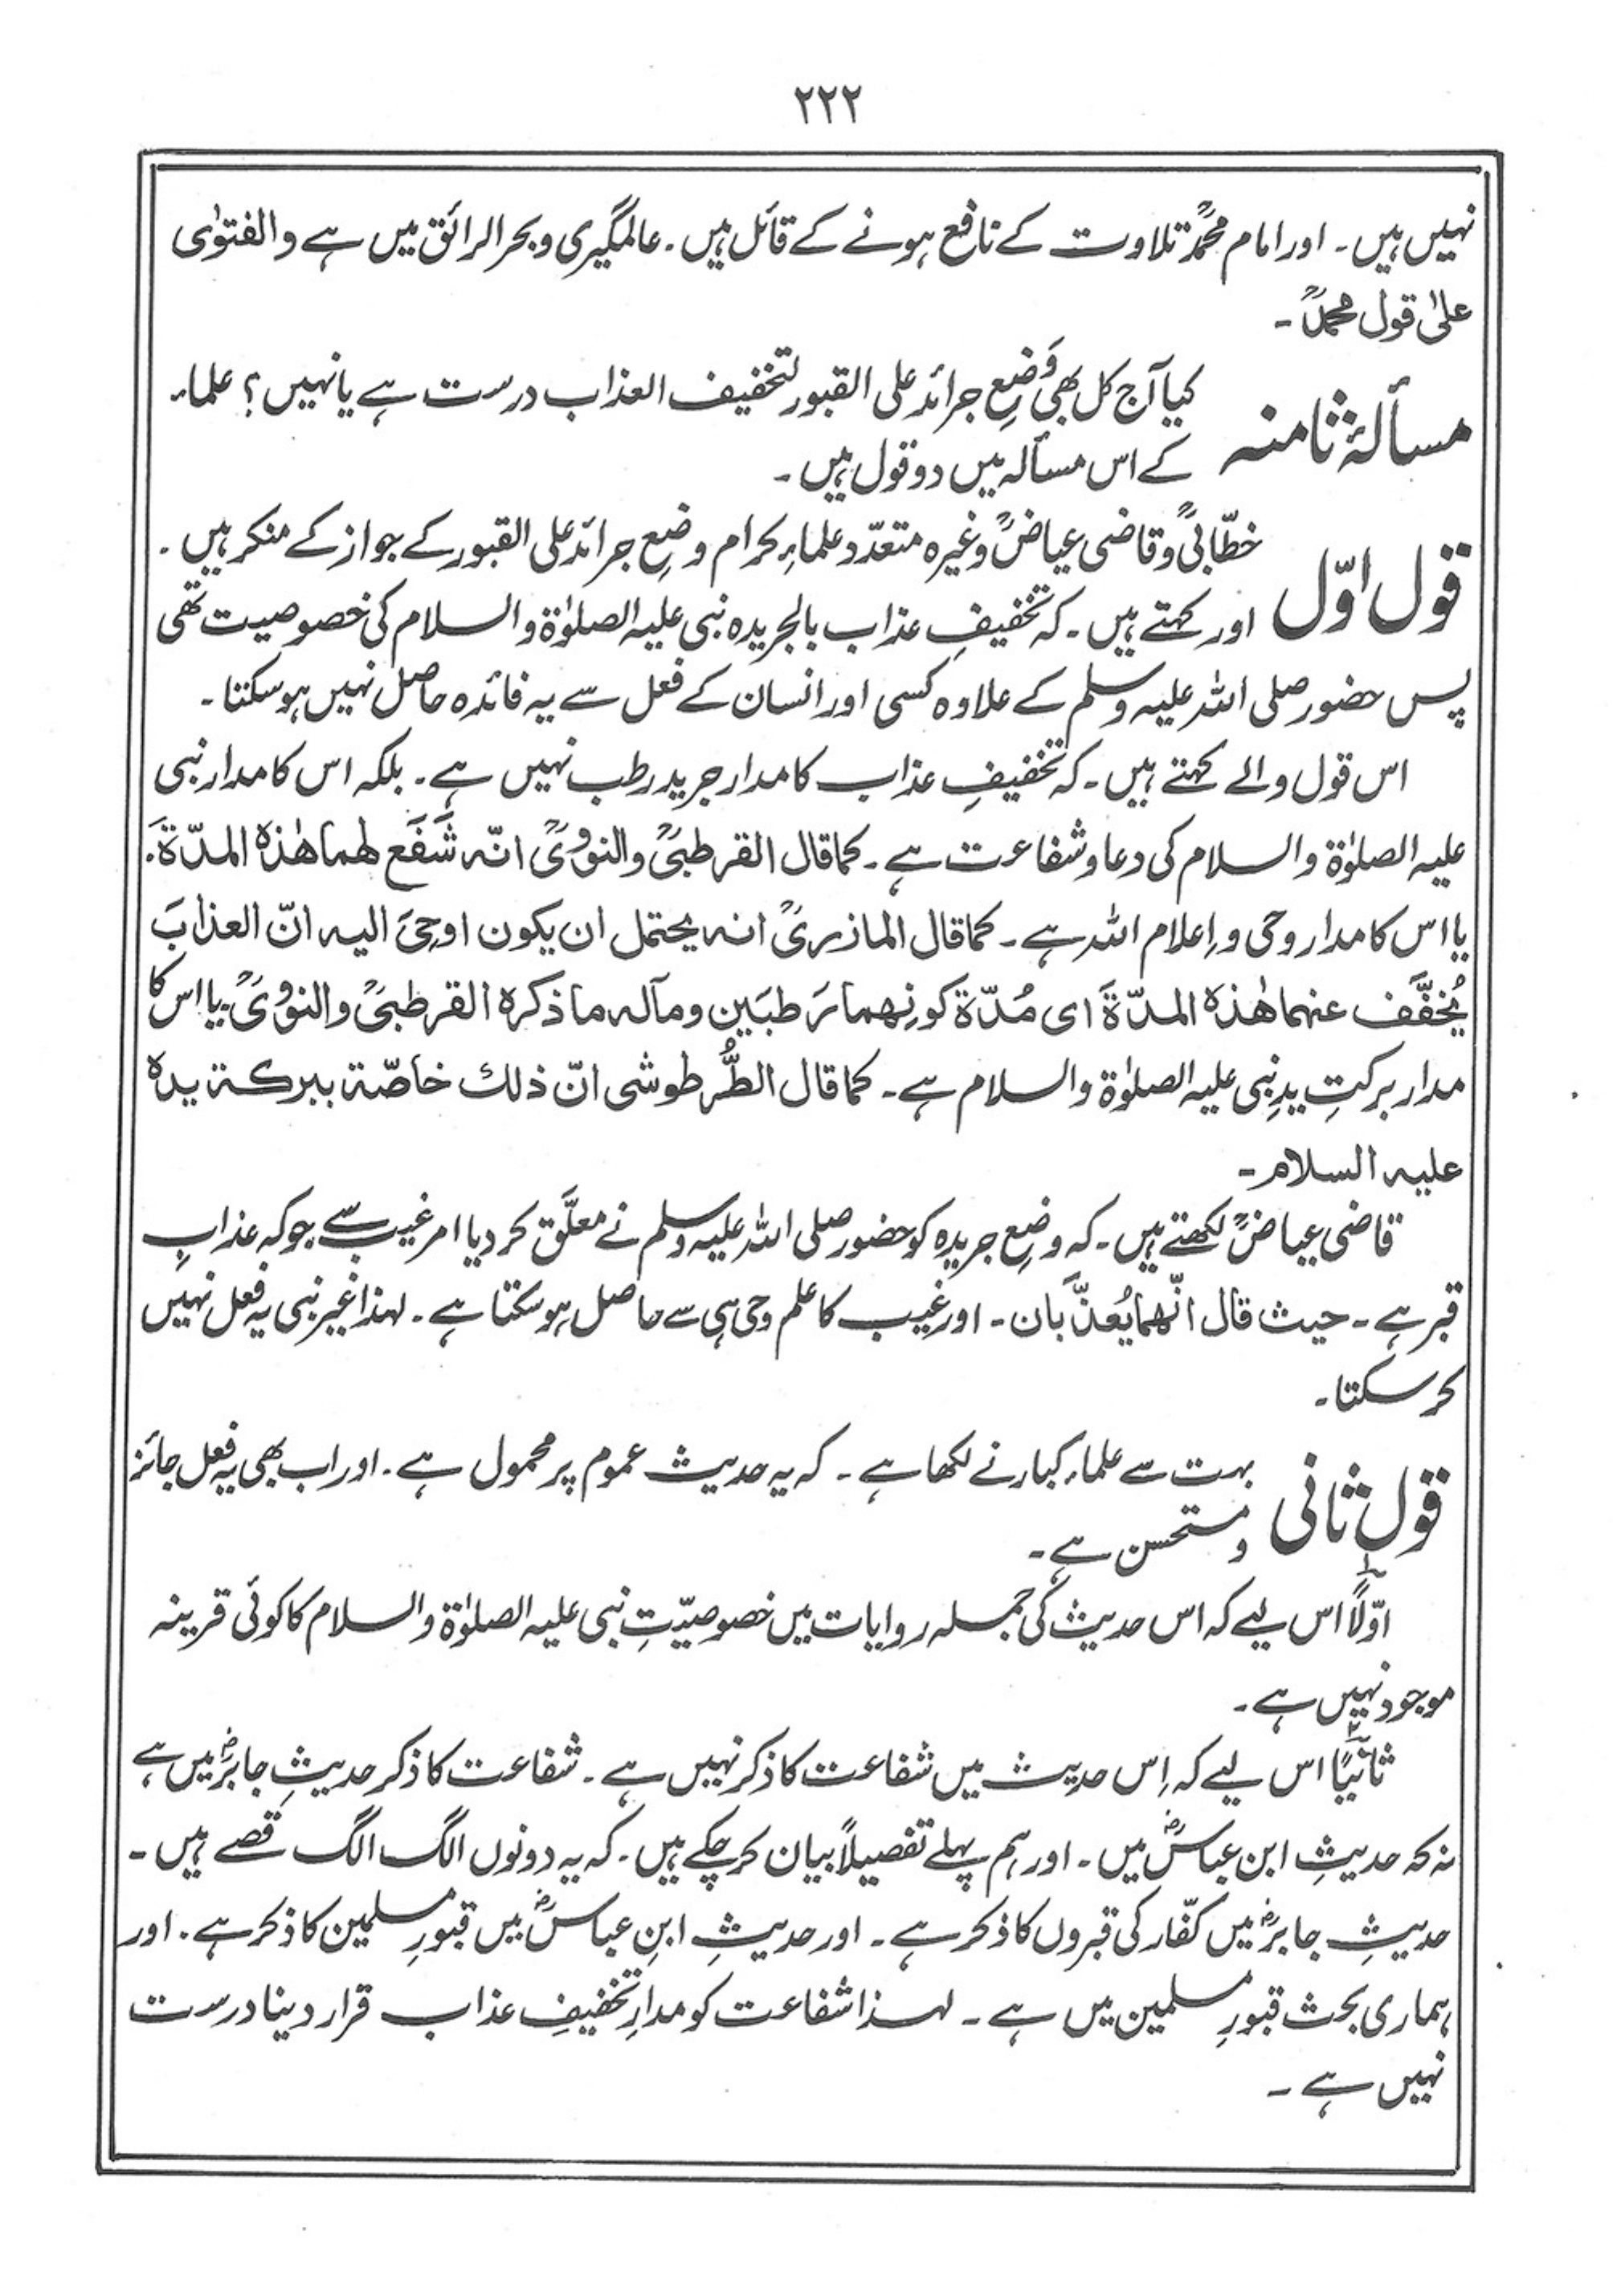 ۲۲۲
نہیں ہیں۔ اور امام محمدؒ تلاوت کے نافع ہونے کے قائل ہیں۔ عالمگیری و بحر الرائق میں ہے والفتوٰی
علیٰ قول محمدؒ۔
مسألۂ ثامنہ کیا آج کل بھی وَضعِ جرائد علی القبور لتخفیف العذاب درست ہے یا نہیں؟ علماء
کے اس مسألہ میں دو قول ہیں۔
قول اوّل خطّابیؒ و قاضی عیاضؒ وغیرہ متعدّد علماءِ کرام وضعِ جرائد علی القبور کے جواز کے منکر ہیں۔
اور کہتے ہیں۔ کہ تخفیفِ عذاب بالجریدہ نبی علیہ الصلوٰۃ والسلام کی خصوصیت تھی
پس حضور صلی اللہ علیہ وسلم کے علاوہ کسی اور انسان کے فعل سے یہ فائدہ حاصل نہیں ہوسکتا۔
اس قول والے کہتے ہیں۔ کہ تخفیفِ عذاب کا مدار جرید رطب نہیں ہے۔ بلکہ اس کا مدار نبی
علیہ الصلوٰۃ والسلام کی دعا و شفاعت ہے۔ کما قال القرطبیؒ والنوویؒ انّہ شَفَعَ لھما ھٰذہ المدّۃَ۔
یا اس کا مدار وحی و اِعلام اللہ ہے۔ کما قال المازریؒ انہ یحتمل ان یکون اوحِیَ الیہ انّ العذابَ
یُخفَّف عنہما ھٰذہ المدّۃَ ای مُدّۃ کونِھما رَطبَین ومآلہ ما ذکرہ القرطبیؒ والنوویؒ۔ یا اس کا
مدار برکتِ یدِ نبی علیہ الصلوٰۃ والسلام ہے۔ کما قال الطُّرطوشی انّ ذلك خاصّۃ ببرکۃ یدہ
علیہ السلام۔
قاضی عیاضؒ لکھتے ہیں۔ کہ وضعِ جریدہ کو حضور صلی اللہ علیہ وسلم نے معلَّق کر دیا امر غیب سے جو کہ عذابِ
قبر ہے۔ حیث قال انّھما یُعذَّبان۔ اور غیب کا علم وحی ہی سے حاصل ہو سکتا ہے۔ لہٰذا غیر نبی یہ فعل نہیں
کر سکتا۔
قول ثانی بہت سے علماء کبار نے لکھا ہے۔ کہ یہ حدیث عموم پر محمول ہے۔ اور اب بھی یہ فعل جائز
و مستحسن ہے۔
اوّلاً اس لیے کہ اس حدیث کی جملہ روایات میں خصوصیّتِ نبی علیہ الصلوٰۃ والسلام کا کوئی قرینہ
موجود نہیں ہے۔
ثانیًا اس لیے کہ اِس حدیث میں شفاعت کا ذکر نہیں ہے۔ شفاعت کا ذکر حدیثِ جابرؓ میں ہے
نہ کہ حدیثِ ابن عباسؓ میں۔ اور ہم پہلے تفصیلاً بیان کر چکے ہیں۔ کہ یہ دونوں الگ الگ قصے ہیں۔
حدیثِ جابرؓ میں کفّار کی قبروں کا ذکر ہے۔ اور حدیثِ ابنِ عباسؓ میں قبورِ مسلمین کا ذکر ہے۔ اور
ہماری بحث قبورِ مسلمین میں ہے۔ لہذا شفاعت کو مدارِ تخفیفِ عذاب قرار دینا درست
نہیں ہے۔